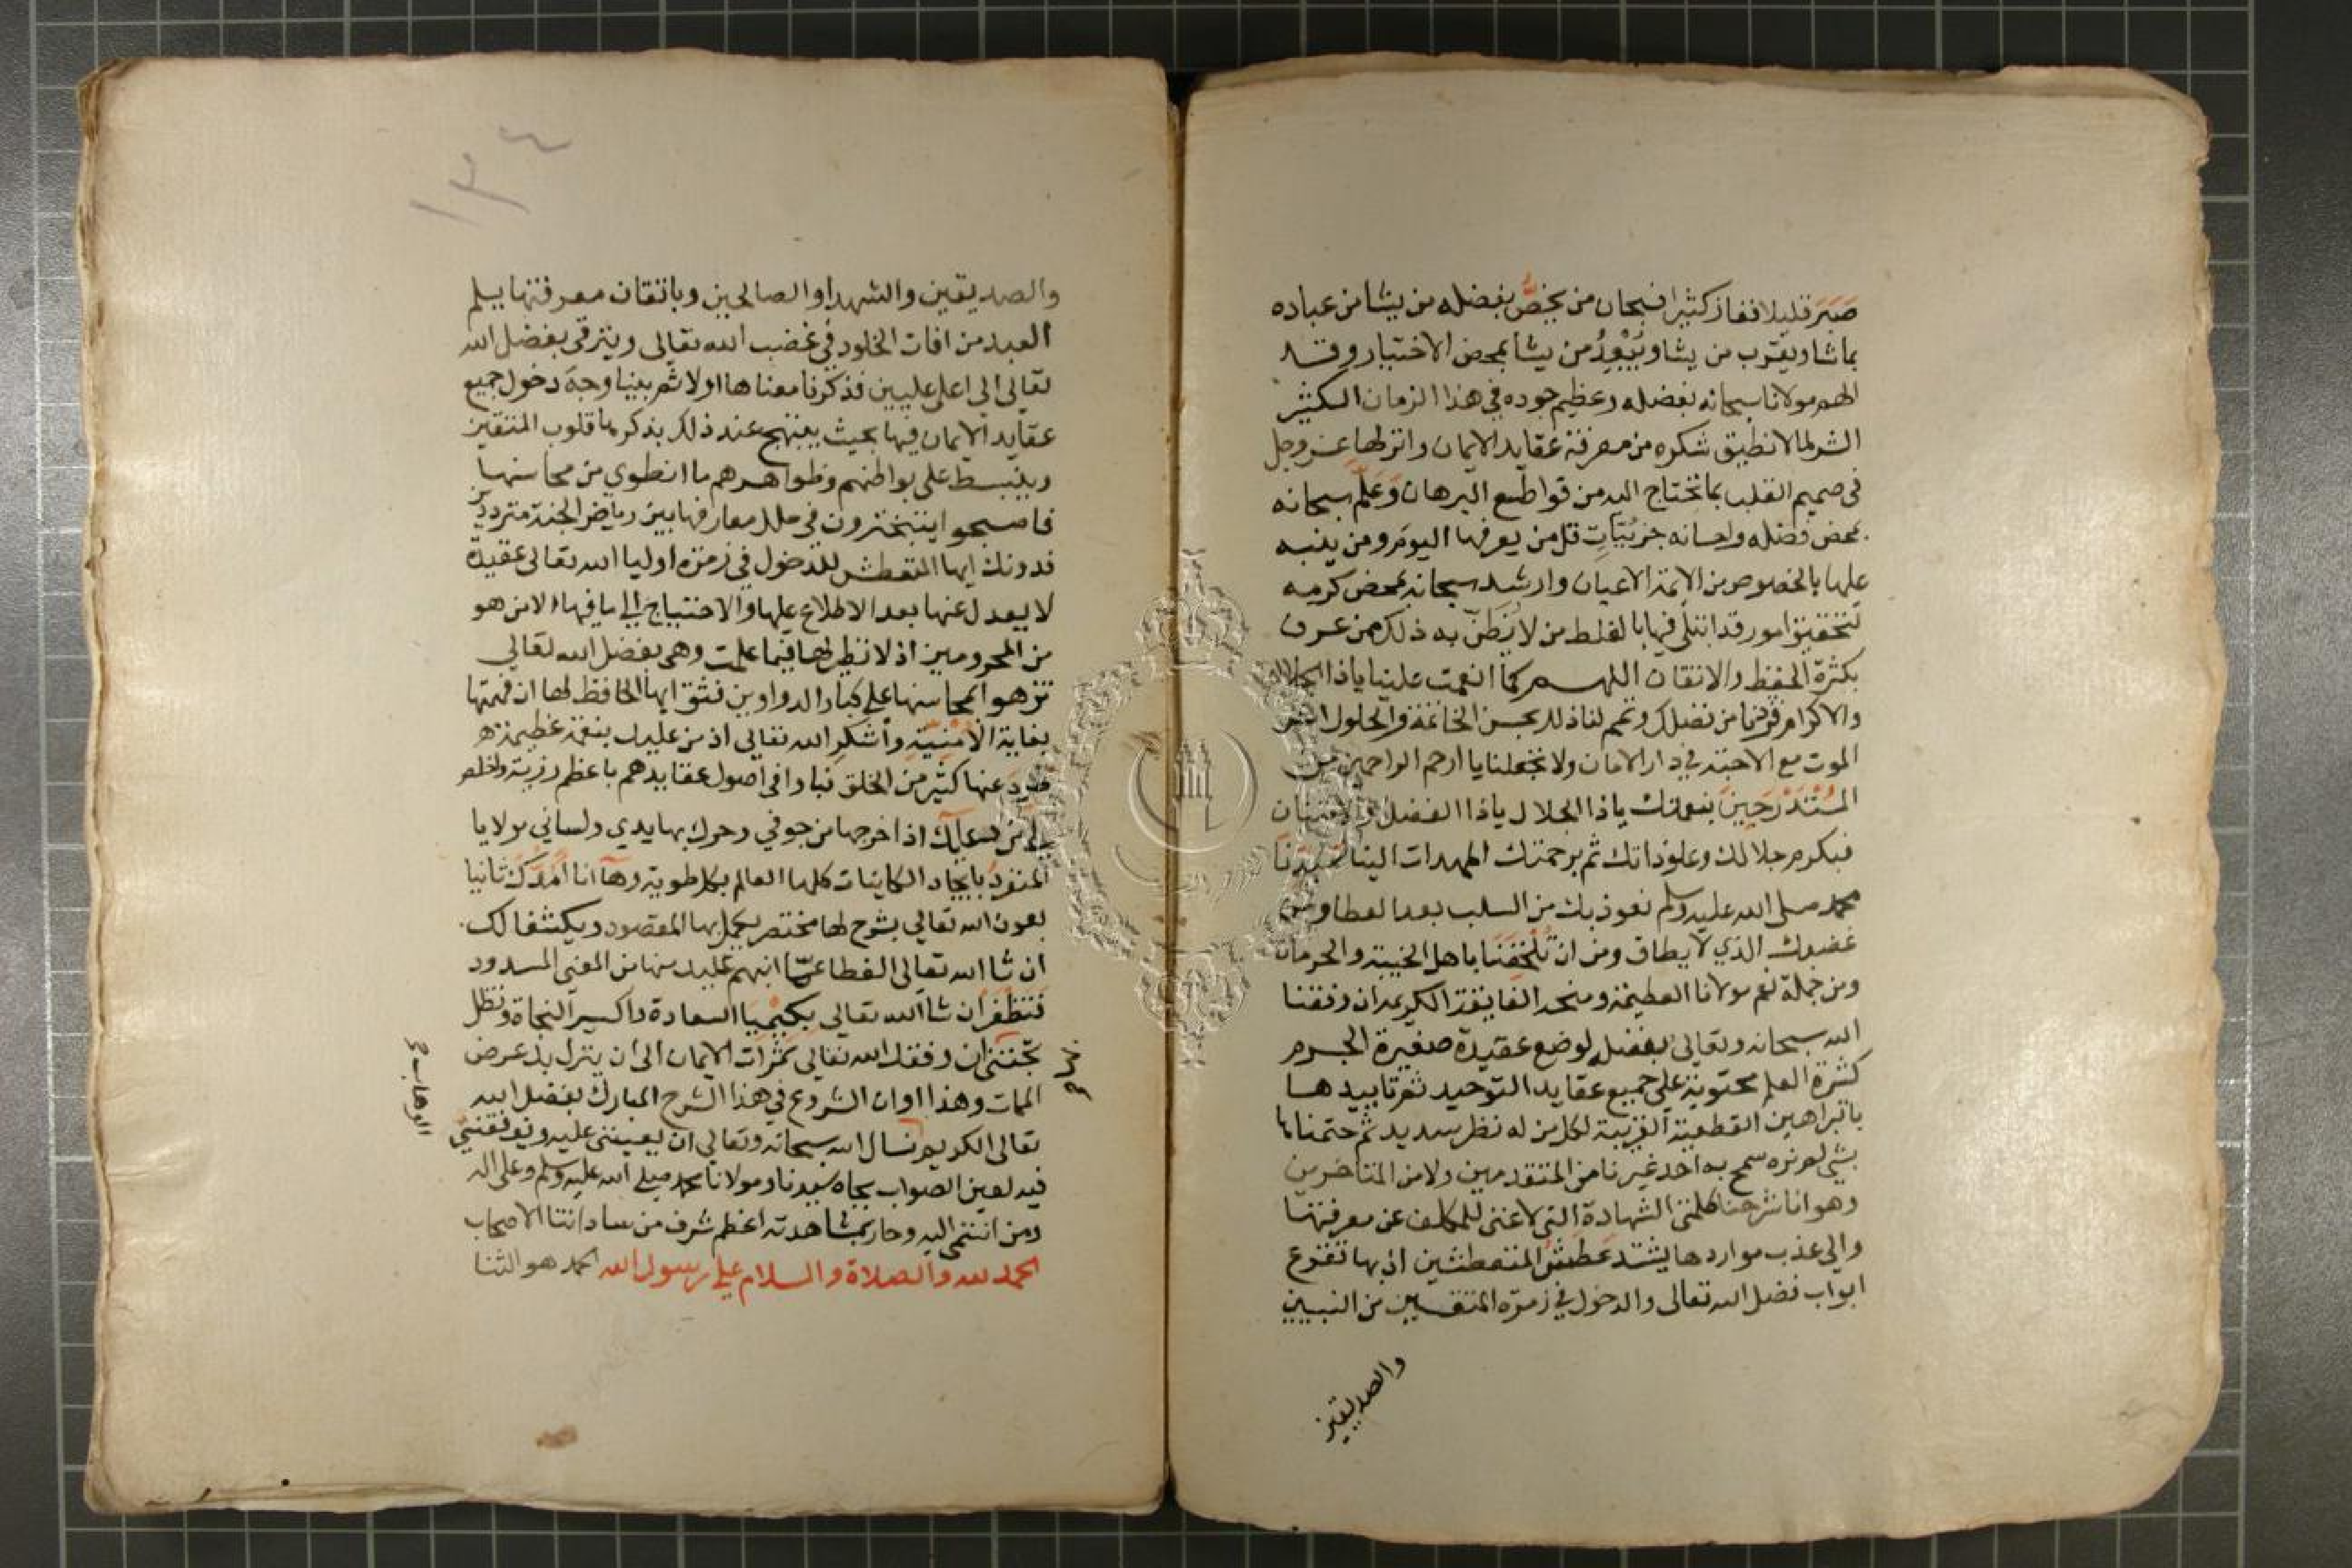 صَبَرَ قليلا ففاز كثيرا فسبحان من يخصُّ بفضله من يشا من عباده
بما شا ويقرب من يشا ويُبْعِدُ من يشا بمحض الاختيار وقد
الهم مولانا سبحانه بفضله وعظيم جوده في هذا الزمان الكثير
الشر لما لا نطيق شكره من معرفة عقايد الايمان وانزلها عز وجل
في صميم القلب بما تحتاج اليه من قواطع البرهان وَعَلَّم سبحانه
بمحض فضله واحسانه جزئيات قل من يعرفها اليوم ومن ينبه
عليها بالخصوص من الايمة الاعيان وارشد سبحانه بمحض كرمه
لتحقيق امور قد ابتلي فيها بالغلط من لا يُظَنّ به ذلك ممن عرف
بكثرة الحفظ والاتقان اللهم كما انعمت علينا ياذا الجلال
والاكرام فزدنا من فضلك وتمم لنا ذلك بحسن الخاتمة والحلول اثر
الموت مع الاحبة في دار الامان ولا تجعلنا يا ارحم الراحمين من
المُسْتَدْرَجِين بنعمتك ياذا الجلال ياذا الفضل والامتنان
فبكرم جلالك وعلو ذاتك ثم برحمتك المهدات الينا سَيّدنا
محمد صلى الله عليه وسلم نعوذ بك من السلب بعد العطا ومن
غضبك الذي لا يطاق ومن ان تُلْحِقَنَا باهل الخيبة والحرمان
ومن جملة نعم مولانا العظيمة ومنحه الفايقة الكريمة ان وفقنا
الله سبحانه وتعالى بفضله لوضع عقيدة صغيرة الجرم
كثيرة العلم محتوية على جميع عقايد التوحيد ثم تاييدها
بالبراهين القطعية القريبة لكل من له نظر سديد ثم ختمناها
بشي لم نره سمح به احد غيرنا من المتقدمين ولا من المتاخرين
وهو انا شرحنا كلمتي الشهادة التي لا غنى للمكلف عن معرفتها
والي عذب مواردها يشتد عَطَشُ المتعطشين اذ بها تقرع
ابواب فضل الله تعالى والدخول في زمرة المتقين من النبيين
والصديقين
١٣٤
والصديقين والشهدا والصالحين وباتقان معرفتها يسلم
العبد من افات الخلود في غضب الله تعالى ويترقى بفضل الله
تعالى الى اعلى عليين فذكرنا معناها اولا ثم بينا وجه دخول جميع
عقايد الايمان فيها بحيث يبتهج عند ذلك بذكرها قلوب المتقين
وينبسط على بواطنهم وظواهرهم ما انطوي من محاسنها
فاصبحوا يتبخترون في حلل معارفها بين رياض الجنة مترددين
فدونك ايها المتعطش للدخول في زمرة اوليا الله تعالى عقيدة
لا يعدل عنها بعد الاطلاع عليها والاحتياج الى ما فيها الا من هو
من المحرومين اذ لا نظير لها فيما علمت وهي بفضل الله تعالي
تزهوا بمحاسنها على كبار الدواوين فثق ايها الحافظ لها ان فهمتها
بغاية الامْنِيّة وأشكر الله تعالي اذ من عليك بنعمة عظيمة
عنها كثير من الخلق فباوا في اصول عقايدهم باعظم رزية واخلص
لي من دعايك اذ اخرجها من جوفي وحرك بها يدي ولساني مولايا
المنفردُ بايجاد الكاينات كلها العالم بكل طوية وها انا امدك ثانيا
بعون الله تعالي بشرح لها مختصر يكمل بها المقصود ويكشف لك
ان شا الله تعالي الغطا عمّا ابهم عليك منها من المعنى المسدود
فَتَظْفَر ان شا الله تعالي بِكِيمْيَا السعادة واكسير النجاة وتظل
تجتني ان وفقك الله تعالي ثمرات الايمان الى ان ينزل بك عرض
الممات وهذا اوان الشروع في هذا الشرح المبارك بفضل الله
تعالى الكريم نسال الله سبحانه وتعالي ان يعينني عليه ويوفقني
فيه لعين الصواب بجاه سيدنا ومولانا محمد صلى الله عليه وسلم وعلى اله
ومن انتمى اليه وحاز بمشاهدته اعظم شرف من ساداتنا الاصحاب
الحمد لله والصلاة والسلام علي رسول الله الحمد هو الثنا
الوهاب صح